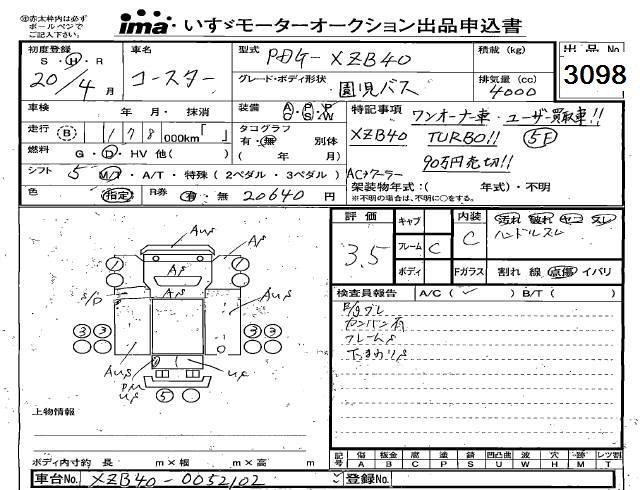 ㊟赤太枠内は必ず
ボールペンで
ご記入下さい。
ima いすゞモーターオークション出品申込書
初度登録
S・H・R
20/4月
車名
コースター
型式
PDG-XZB40
グレード・ボディ形状
園児バス
積載 (kg)
排気量 (cc)
4000
出品No
3098
車検 年 月・ 抹消
装備 A P P
C S W
特記事項
ワンオーナー車・ユーザー買取車!!
XZB40 TURBO!! 5F
90万円売切!!
走行 B 1 7 8 000km「 」
タコグラフ
有・無 別体
( 年 月)
燃料 G・D・HV 他( )
シフト 5 M/T・A/T・特殊(2ペダル・3ペダル)
ACクーラー
架装物年式:( 年式)・不明
※不明の場合は、不明に○をする。
色 指定 R券 有・無 20640円
評価
3.5
キャブ
フレーム C
ボディ
内装 C
汚れ 破れ ヤニ スレ
ハンドルスレ
Fガラス 割れ 線 点傷 イバリ
検査員報告 A/C( ✓ ) B/T( )
カンバン有
フレームS
下まわりS
AUS
AS
AS
AS
S/P
AUS
AUS
US
US
1
1
3 3
3 3
5
上物情報
ボディ内寸約 長 m×幅 m×高 m
記号 傷A 板金B 腐C 凹P 塗S 錆U 凸凹曲W 波H 穴M 跡T レツ割
車台No. XZB40-0052102
登録No.